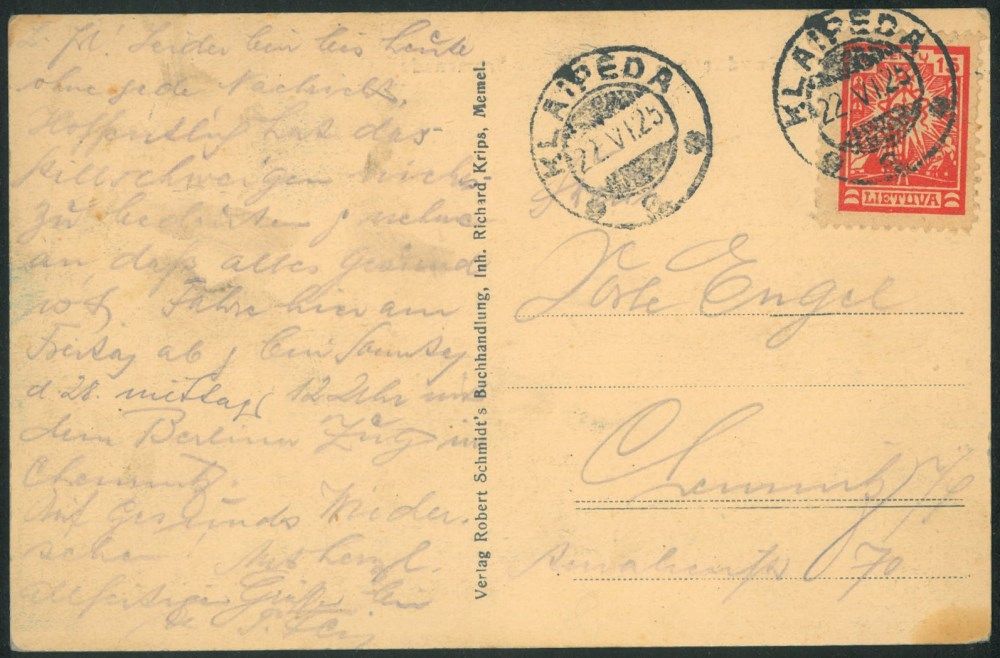 Leider bin bis heute
ohne jede Nachricht,
Hoffentlich hat das
Stillschweigen nichts
zu bedeuten, nehme
an, daß alles gesund
ist. Fahre hier am
Freitag ab, bin Sonntag
d. 28. mittags 12 Uhr mit
dem Berliner Zug in
Chemnitz.
Auf Gesundes Wieder-
sehen!
Grüße
Verlag Robert Schmidt's Buchhandlung, Inh. Richard Krips, Memel.
KLAIPEDA
22.VI.25
KLAIPEDA
22.VI.25
15
LIETUVA
Engel
Chemnitz
70